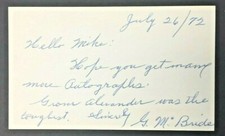 July 26/72
Hello Mike:
Hope you get many
more Autographs.
Grover Alexander was the
toughest. Sincerely
G. McBride